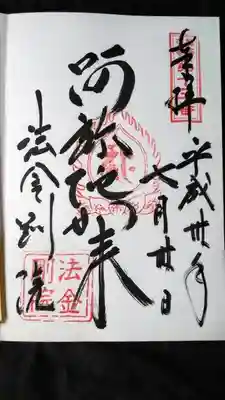 奉拝
平成卅年
七月廿日
阿弥陀如来
法金剛院
法金
剛院